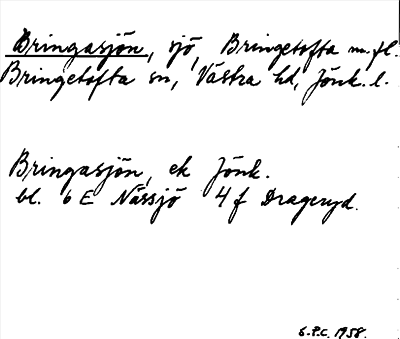 Bringasjön, sjö, Bringetofta m.fl.
Bringetofta sn, Västra hd, Jönk. l.
Bringasjön, ek Jönk.
bl. 6 E Nässjö 4 f Drageryd.
G.P.C. 1958.